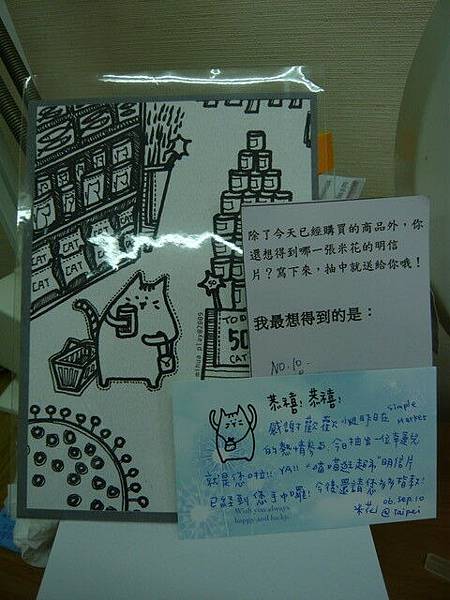 CAT
CAT
CAT
CAT
TOD
50
CAT
ahua play@2009
除了今天已經購買的商品外，你
還想得到哪一張米花的明信
片？寫下來，抽中就送給你哦！
我最想得到的是：
NO.10.
恭禧！恭禧！
感謝歡歡小姐昨日在 Simple Market
的熱情參与，今日抽出一位幸運兒
就是您啦!! YA!! 喵喵逛超市"明信片
已經到您手中囉！今後還請您多多指教！
Wish you always
happy and lucky.
06.sep.10
米花@Taipei